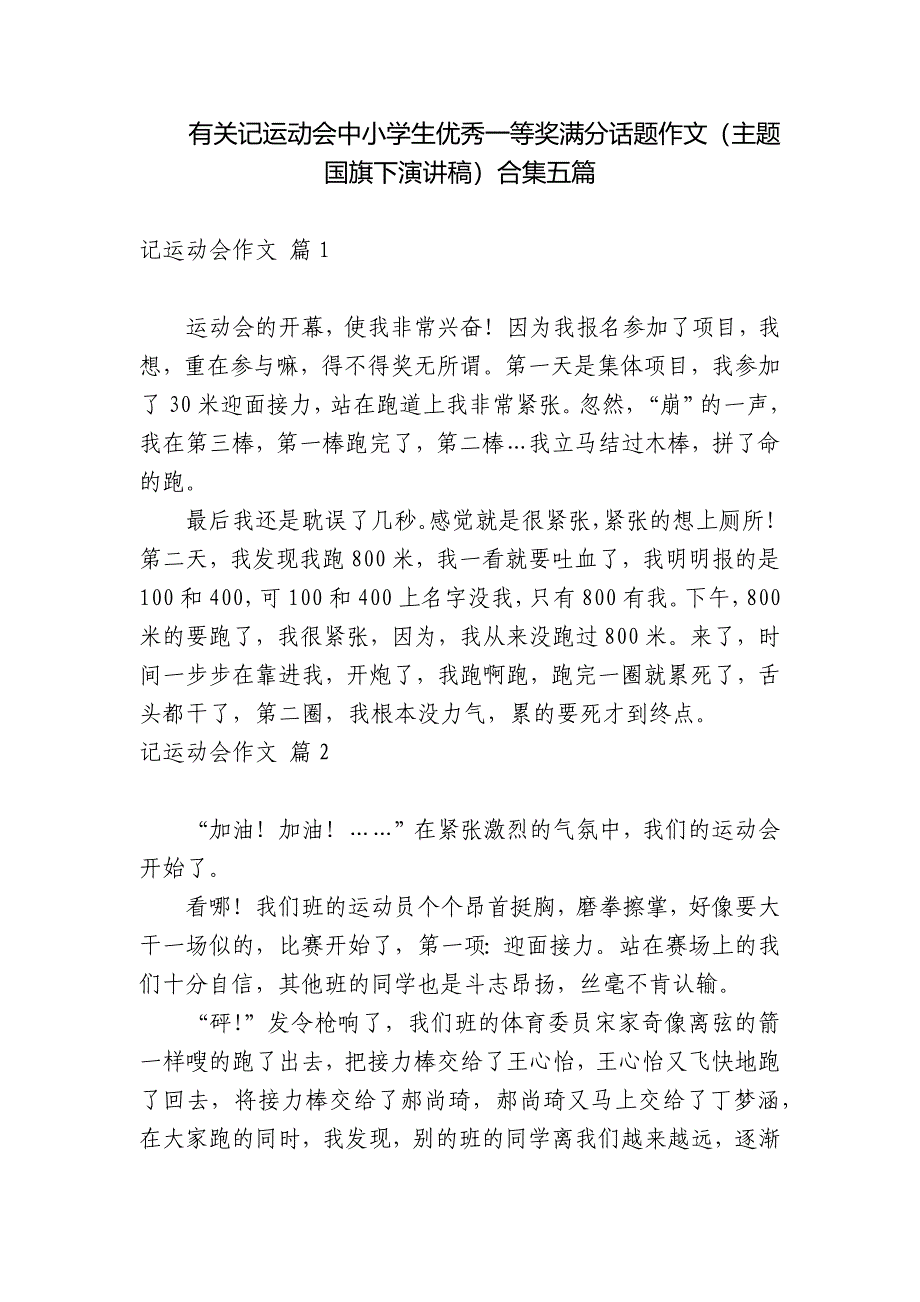 有关记运动会中小学生优秀一等奖满分话题作文（主题
国旗下演讲稿）合集五篇
记运动会作文 篇1
运动会的开幕，使我非常兴奋！因为我报名参加了项目，我
想，重在参与嘛，得不得奖无所谓。第一天是集体项目，我参加
了30米迎面接力，站在跑道上我非常紧张。忽然，“崩”的一声，
我在第三棒，第一棒跑完了，第二棒…我立马结过木棒，拼了命
的跑。
最后我还是耽误了几秒。感觉就是很紧张，紧张的想上厕所！
第二天，我发现我跑800米，我一看就要吐血了，我明明报的是
100和400，可100和400上名字没我，只有800有我。下午，800
米的要跑了，我很紧张，因为，我从来没跑过800米。来了，时
间一步步在靠进我，开炮了，我跑啊跑，跑完一圈就累死了，舌
头都干了，第二圈，我根本没力气，累的要死才到终点。
记运动会作文 篇2
“加油！加油！……”在紧张激烈的气氛中，我们的运动会
开始了。
看哪！我们班的运动员个个昂首挺胸，磨拳擦掌，好像要大
干一场似的，比赛开始了，第一项：迎面接力。站在赛场上的我
们十分自信，其他班的同学也是斗志昂扬，丝毫不肯认输。
“砰！”发令枪响了，我们班的体育委员宋家奇像离弦的箭
一样嗖的跑了出去，把接力棒交给了王心怡，王心怡又飞快地跑
了回去，将接力棒交给了郝尚琦，郝尚琦又马上交给了丁梦涵，
在大家跑的同时，我发现，别的班的同学离我们越来越远，逐渐